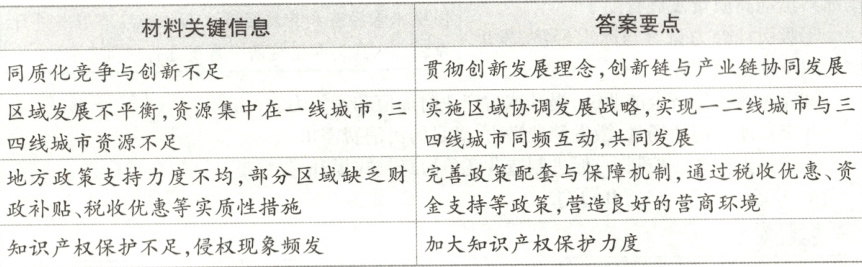 材料关键信息 答案要点
同质化竞争与创新不足 贯彻创新发展理念,创新链与产业链协同发展
区域发展不平衡,资源集中在一线城市,三 实施区域协调发展战略,实现一二线城市与三
四线城市资源不足 四线城市同频互动,共同发展
地方政策支持力度不均,部分区域缺乏财 完善政策配套与保障机制,通过税收优惠、资
政补贴、税收优惠等实质性措施 金支持等政策,营造良好的营商环境
知识产权保护不足,侵权现象频发 加大知识产权保护力度